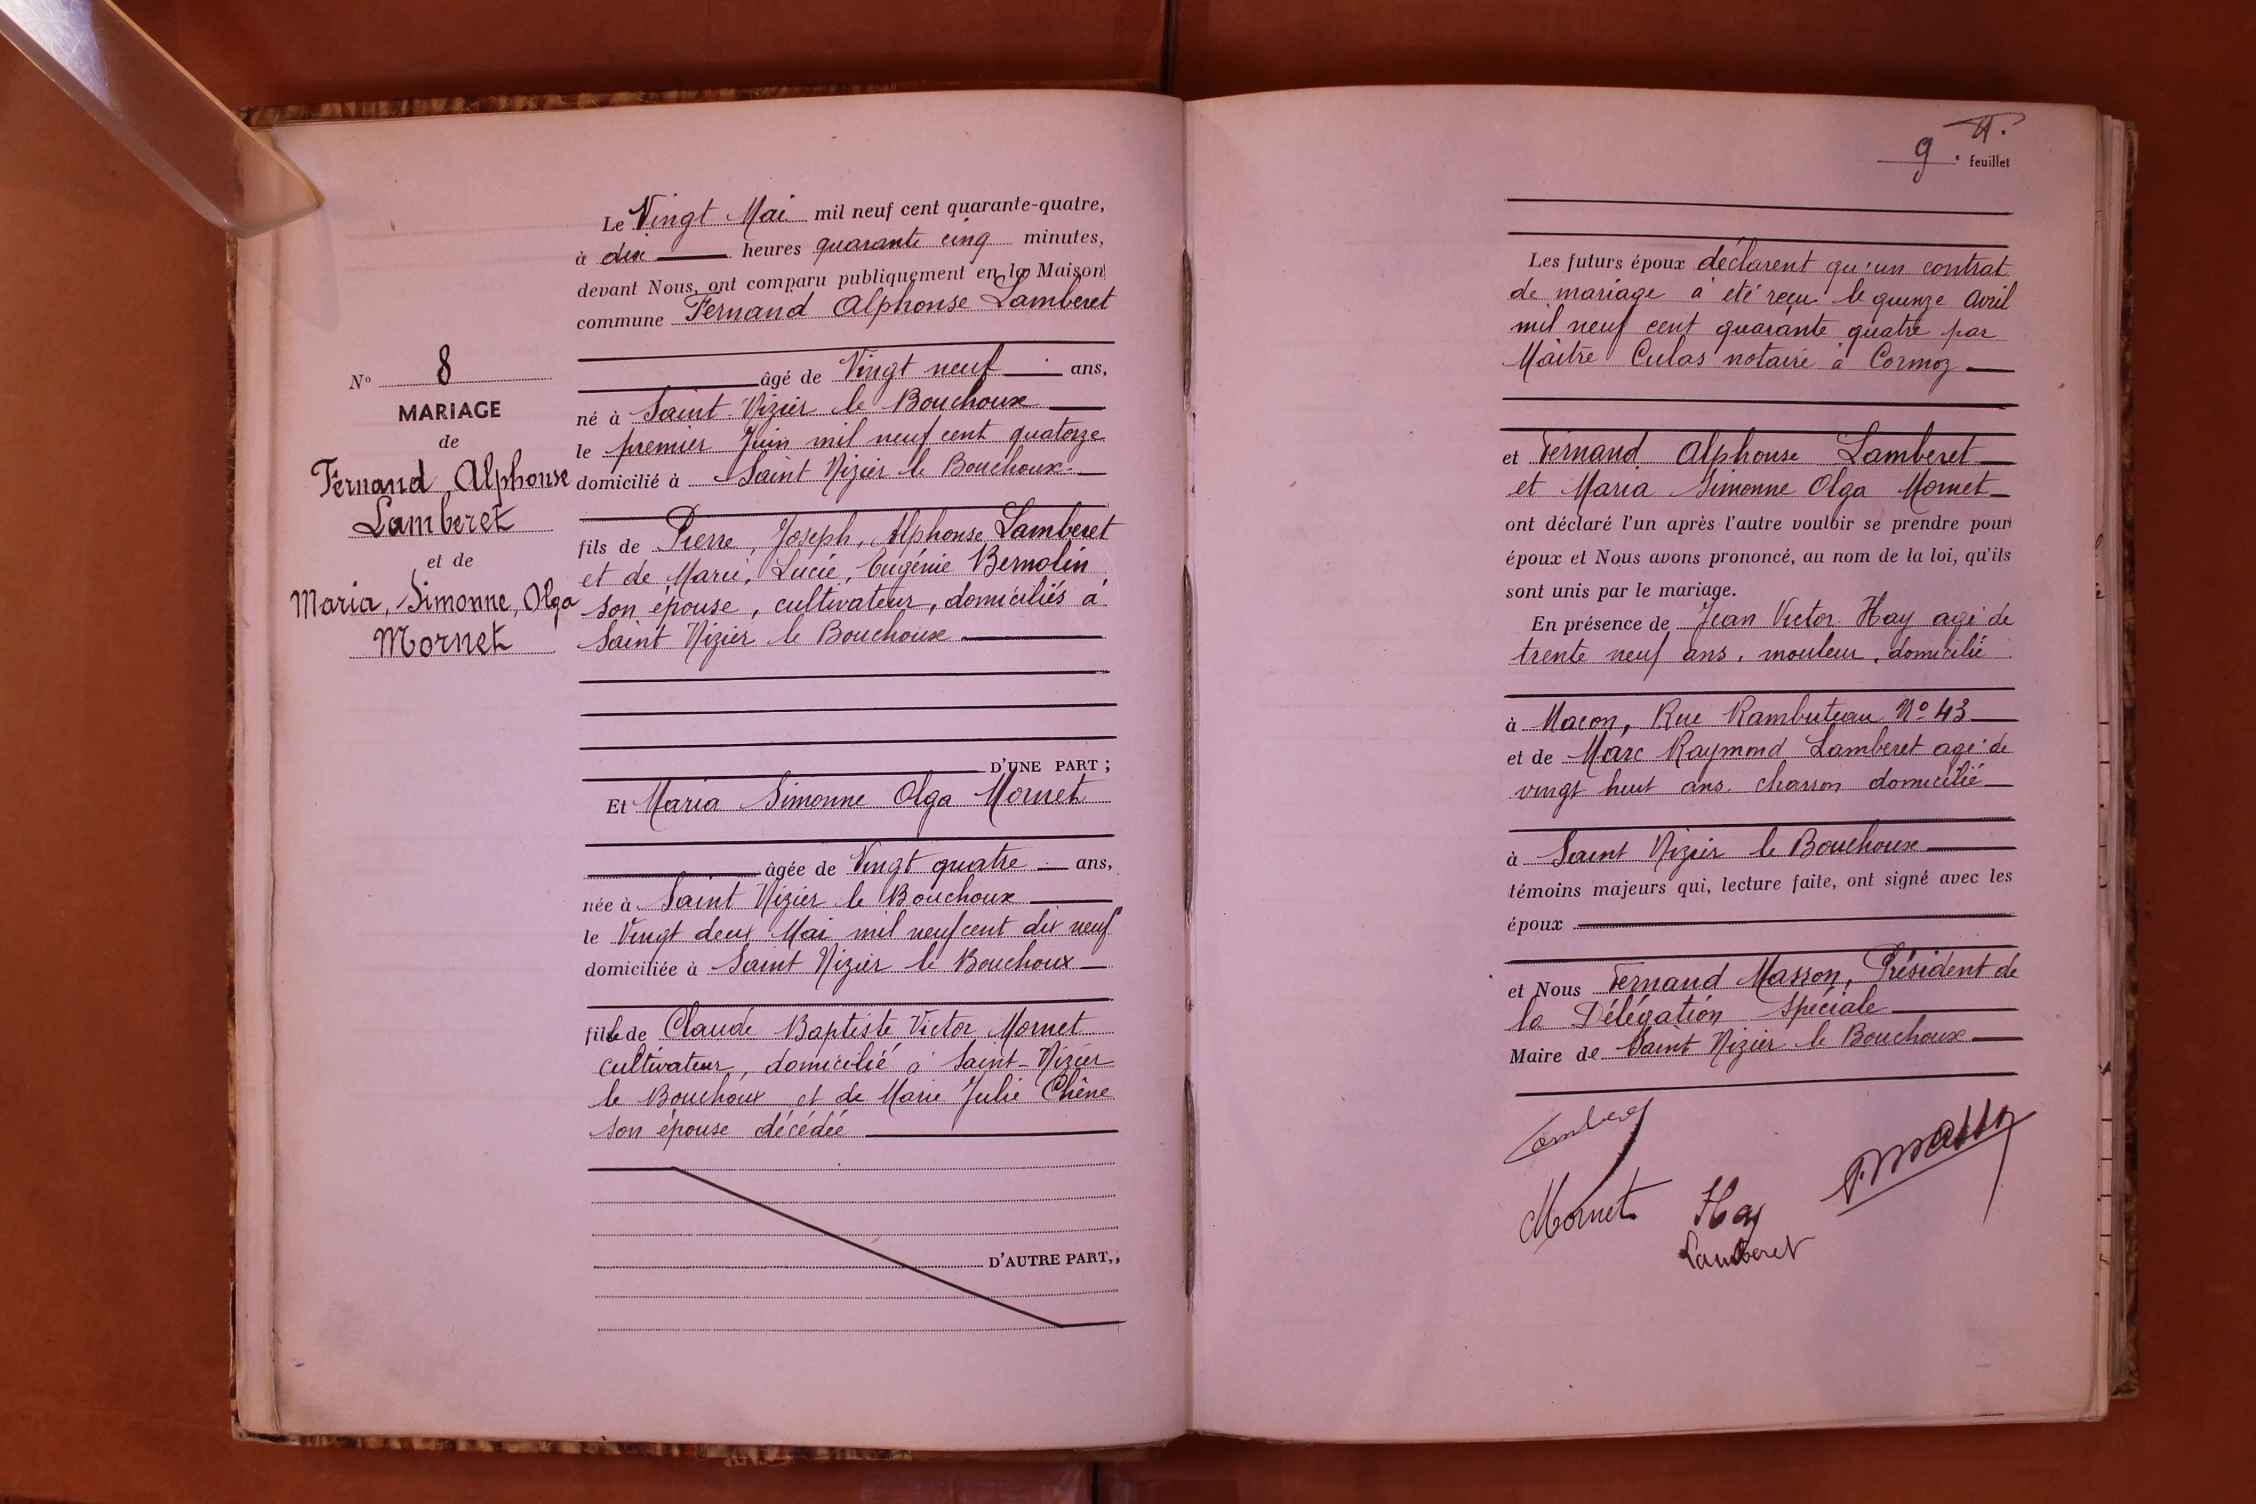 Le Vingt Mai mil neuf cent quarante-quatre,
à dix heures quarante cinq minutes,
devant Nous, ont comparu publiquement en la Maison
commune Fernand Alphonse Lamberet
âgé de Vingt neuf ans,
né à Saint Nizier le Bouchoux
le premier Juin mil neuf cent quatorze
domicilié à Saint Nizier le Bouchoux
fils de Pierre, Joseph, Alphonse Lamberet
et de Marie, Lucie, Eugénie Bernolin
son épouse, cultivateur, domiciliés à
Saint Nizier le Bouchoux
D'UNE PART ;
Et Maria Simonne Olga Mornet
âgée de Vingt quatre ans,
née à Saint Nizier le Bouchoux
le Vingt deux Mai mil neuf cent dix neuf
domiciliée à Saint Nizier le Bouchoux
fille de Claude Baptiste Victor Mornet
cultivateur, domicilié à Saint-Nizier
le Bouchoux et de Marie Julie Chêne
son épouse décédée
D'AUTRE PART,,
N° 8
MARIAGE
de
Fernand, Alphonse
Lamberet
et de
Maria, Simonne, Olga
Mornet
9e feuillet
Les futurs époux déclarent qu'un contrat
de mariage a été reçu le quinze Avril
mil neuf cent quarante quatre par
Maître Culas notaire à Cormoz
et Fernand Alphonse Lamberet
et Maria Simonne Olga Mornet
ont déclaré l'un après l'autre vouloir se prendre pour
époux et Nous avons prononcé, au nom de la loi, qu'ils
sont unis par le mariage.
En présence de Jean Victor Hay agé de
trente neuf ans, mouleur, domicilié
à Macon, Rue Rambuteau N° 43
et de Marc Raymond Lamberet agé de
vingt huit ans charron domicilié
à Saint Nizier le Bouchoux
témoins majeurs qui, lecture faite, ont signé avec les
époux
et Nous Fernand Masson, Président de
la Délégation Spéciale
Maire de Saint Nizier le Bouchoux
Lamberet
F. Masson
Mornet Hay
Lamberet